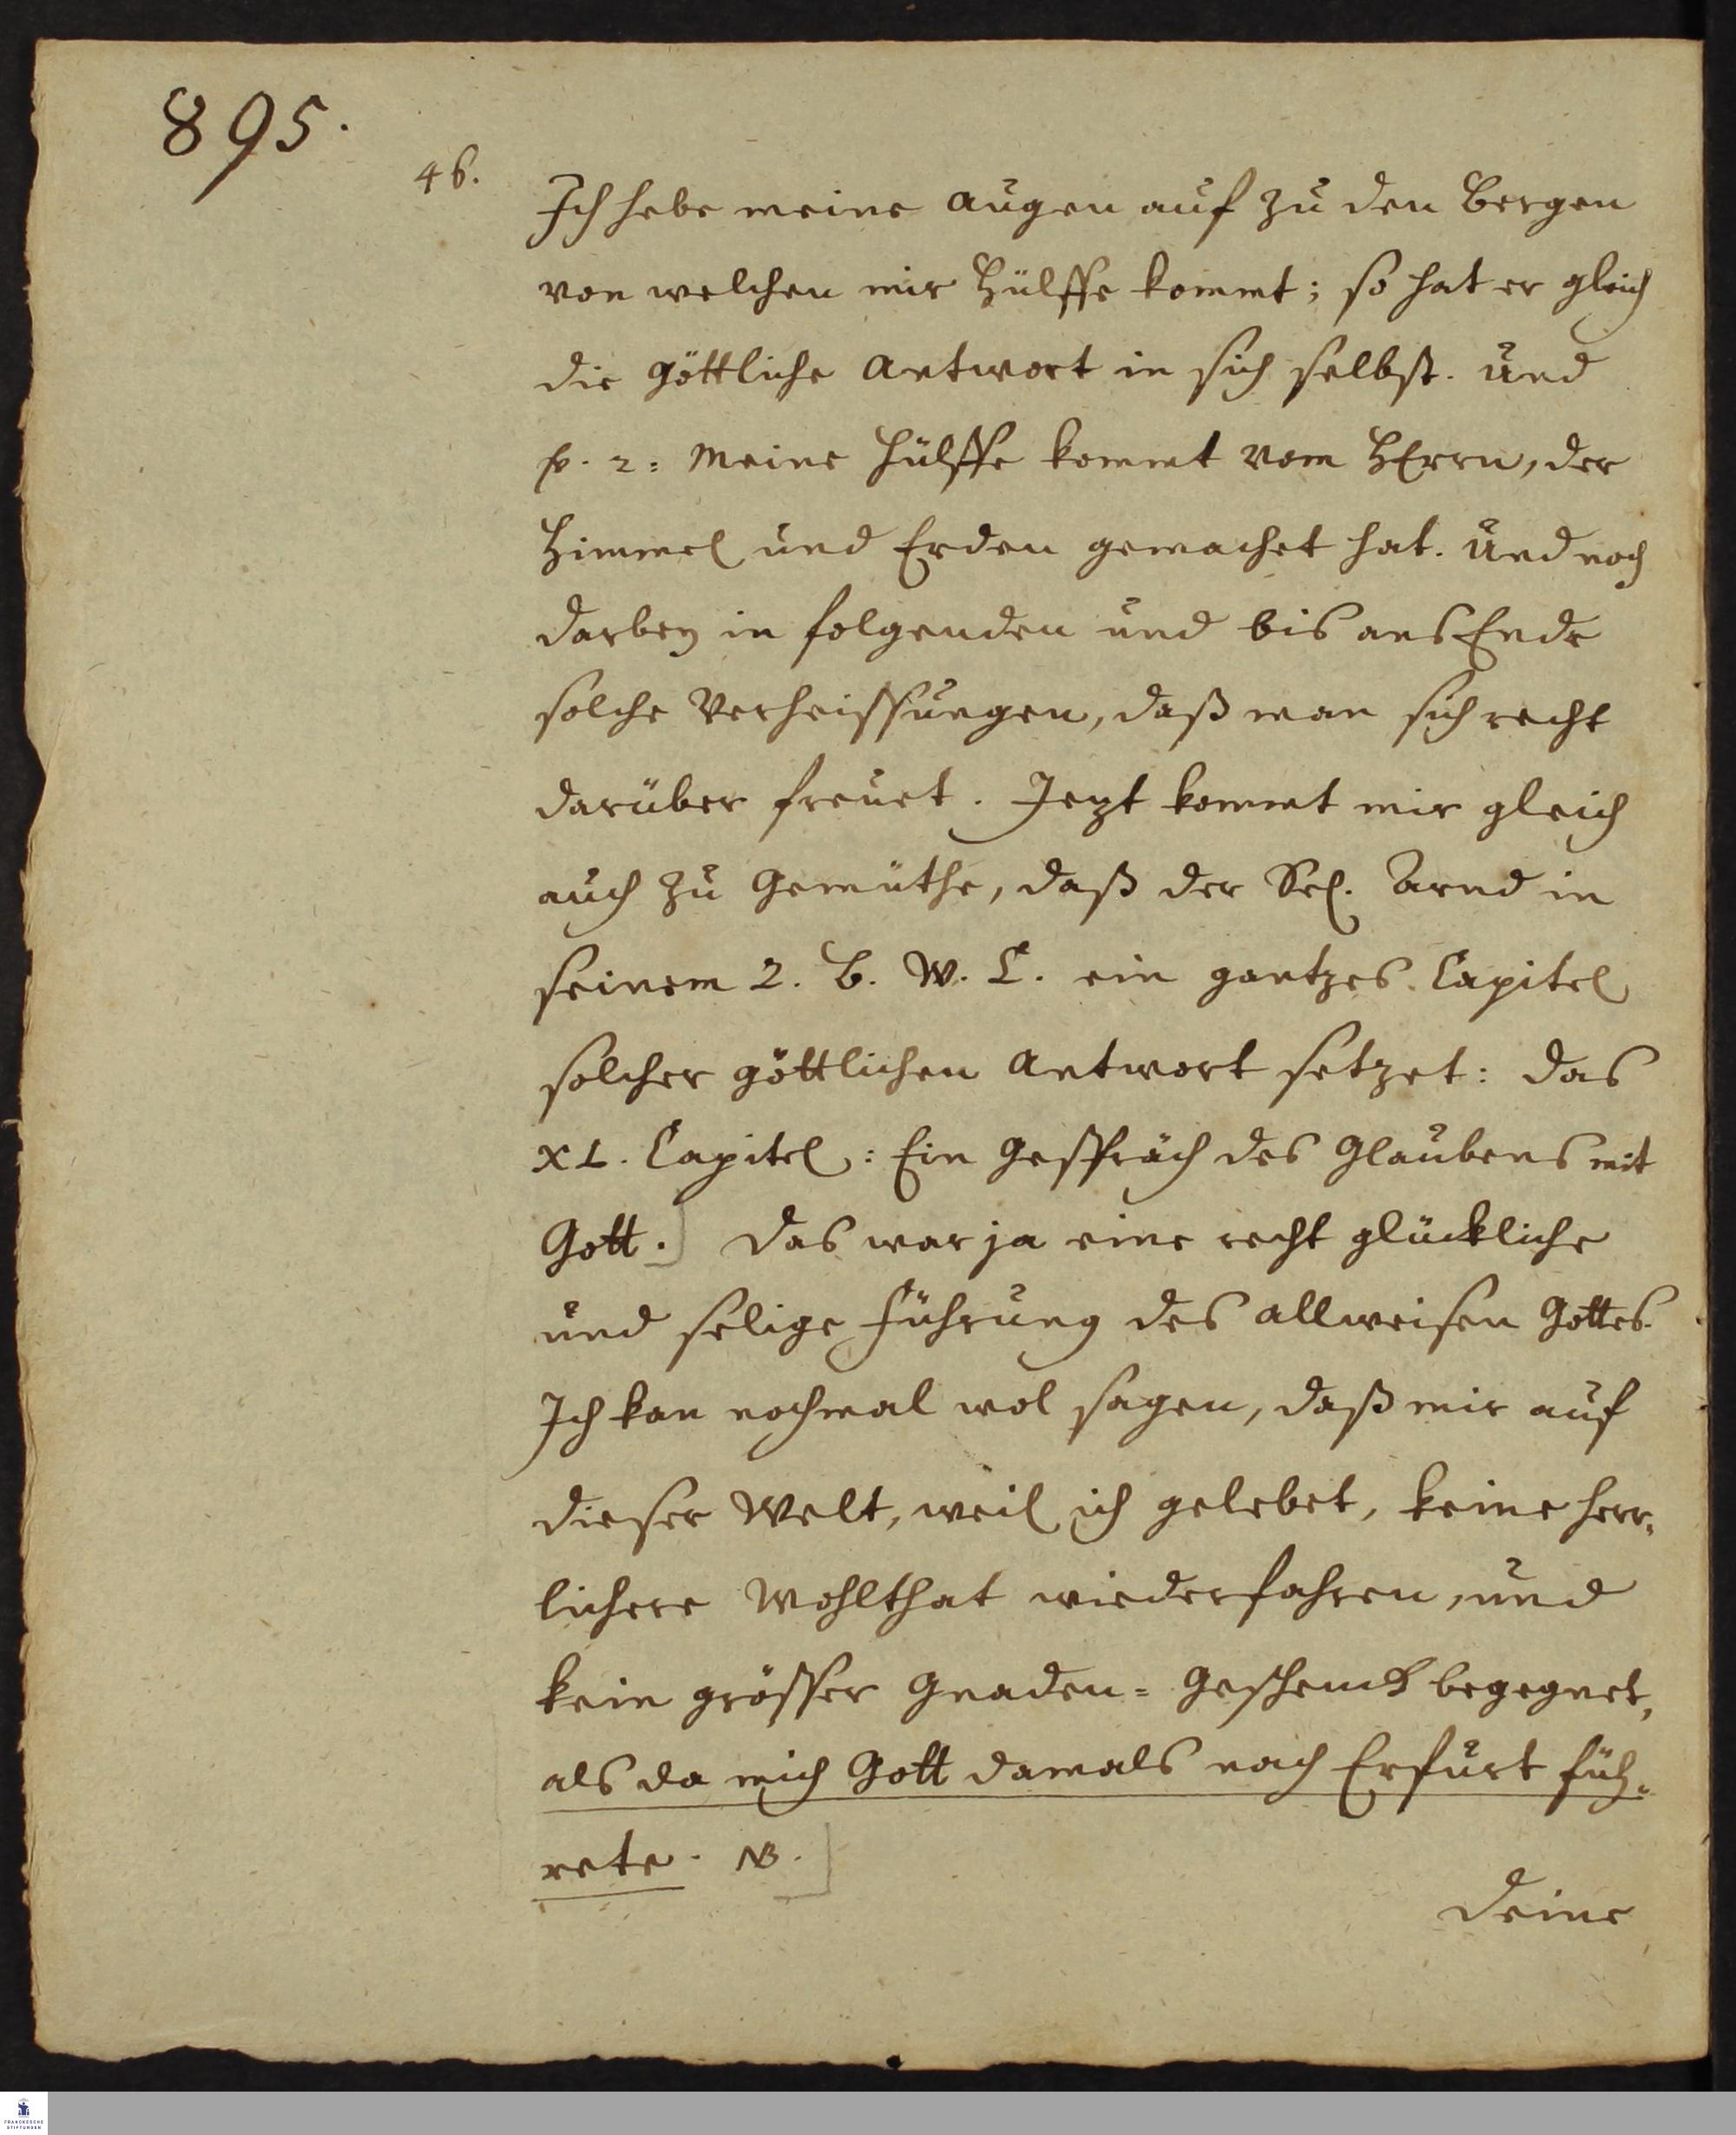 895.
46.
Ich hebe meine Augen auf zu den Bergen
von welchen mir Hülffe kommt; so hat er gleich
die Göttliche Antwort in sich selbst. Und
v. 2: Meine Hülffe kommt vom HErrn, der
Himmel und Erden gemachet hat. Und noch
darbey in folgenden und bis ans Ende
solche Verheissungen, daß man sich recht
darüber freuet. Jezt kommt mir gleich
auch zu Gemüthe, daß der Sel. Arnd in
seinem 2. B. W. C. ein gantzes Capitel
solcher göttlichen Antwort setzet: das
XL. Capitel: Ein Gespräch des Glaubens mit
Gott.] Das war ja eine recht glückliche
und selige Führung des allweisen Gottes.
Ich kan nochmal wol sagen, daß mir auf
dieser Welt, weil ich gelebet, keine herr-
lichere Wohlthat wiederfahren, und
kein grösser Gnaden-Geschenck begegnet,
als da mich Gott damals nach Erfurt füh-
rete. NB.]
Deine
FRANCKESCHE
STIFTUNGEN